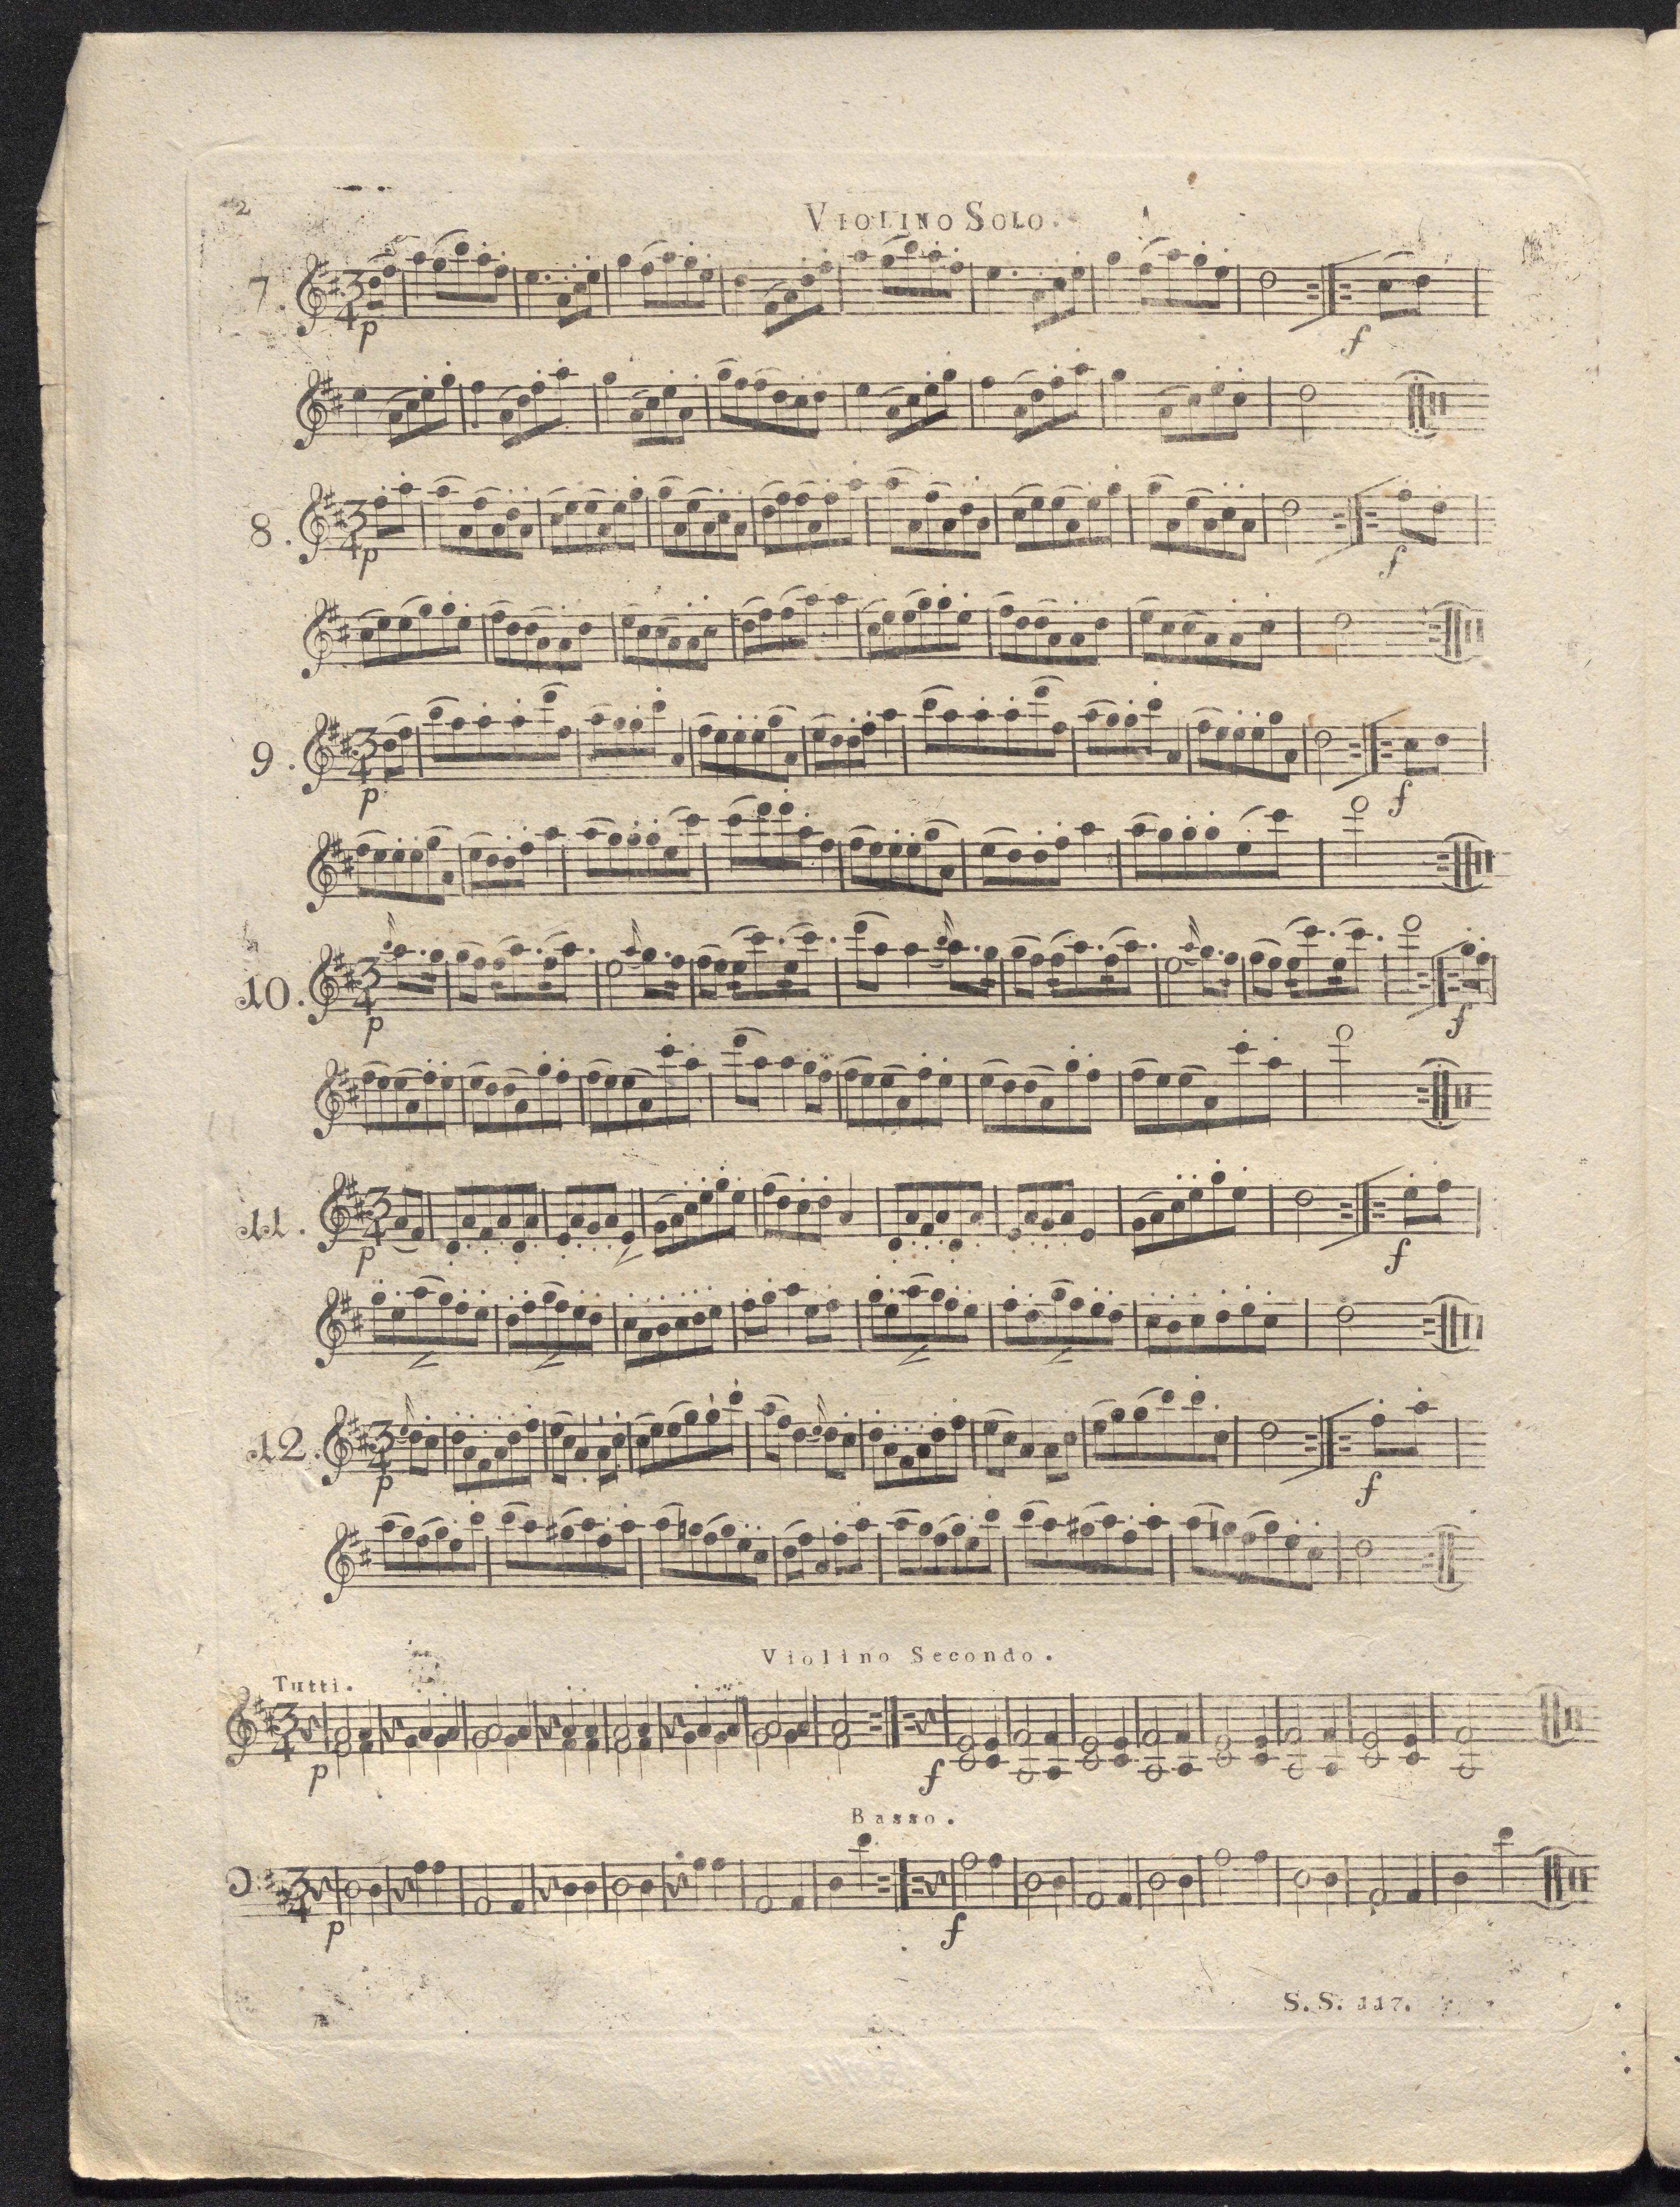 2
VIOLINO SOLO.
7.
3
4
p
f
8.
3
4
p
f
9.
3
4
p
f
10.
3
4
p
f
11.
3
4
p
f
12.
3
4
p
f
Violino Secondo.
Tutti.
3
4
p
f
Basso.
3
4
p
f
S. S. 117.